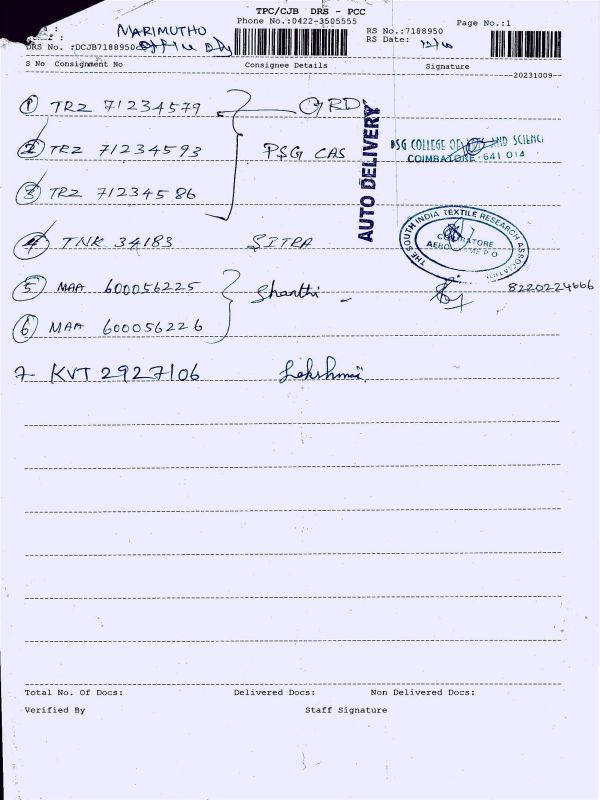 TPC/CJB DRS - PCC
Phone No.:0422-3505555
Page No.:1
MARIMUTHO
RS No.:7188950
RS Date:
DRS No. :DCJB7188950
S No Consignment No Consignee Details Signature
20231009
1 TRZ 71234579 GRD
2 TRZ 71234593 PSG CAS
PSG COLLEGE OF ARTS AND SCIENCE
COIMBATORE - 641 014
3 TRZ 71234586
AUTO DELIVERY
4 TNK 34183 SITRA
THE SOUTH INDIA TEXTILE RESEARCH ASSOCIATION
COIMBATORE
5 MAA 600056225 Shanthi
8220224666
6 MAA 600056226
7 KVT 2927106 Lakshmi
Total No. Of Docs: Delivered Docs: Non Delivered Docs:
Verified By Staff Signature